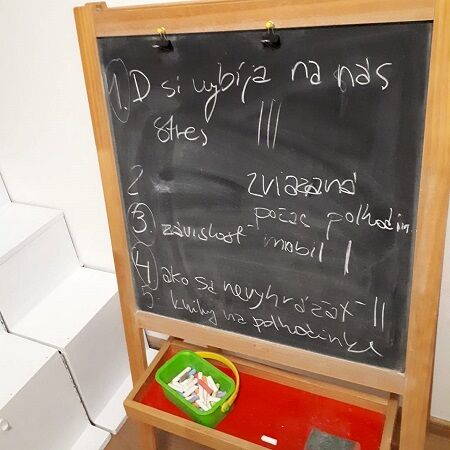 1. D si vybíja na nás
stres |||
2 zviazaná
počas polhodin.
3. závislosť - mobil |
4 ako sa nevyhrážať - ||
5. knihy na polhodinke